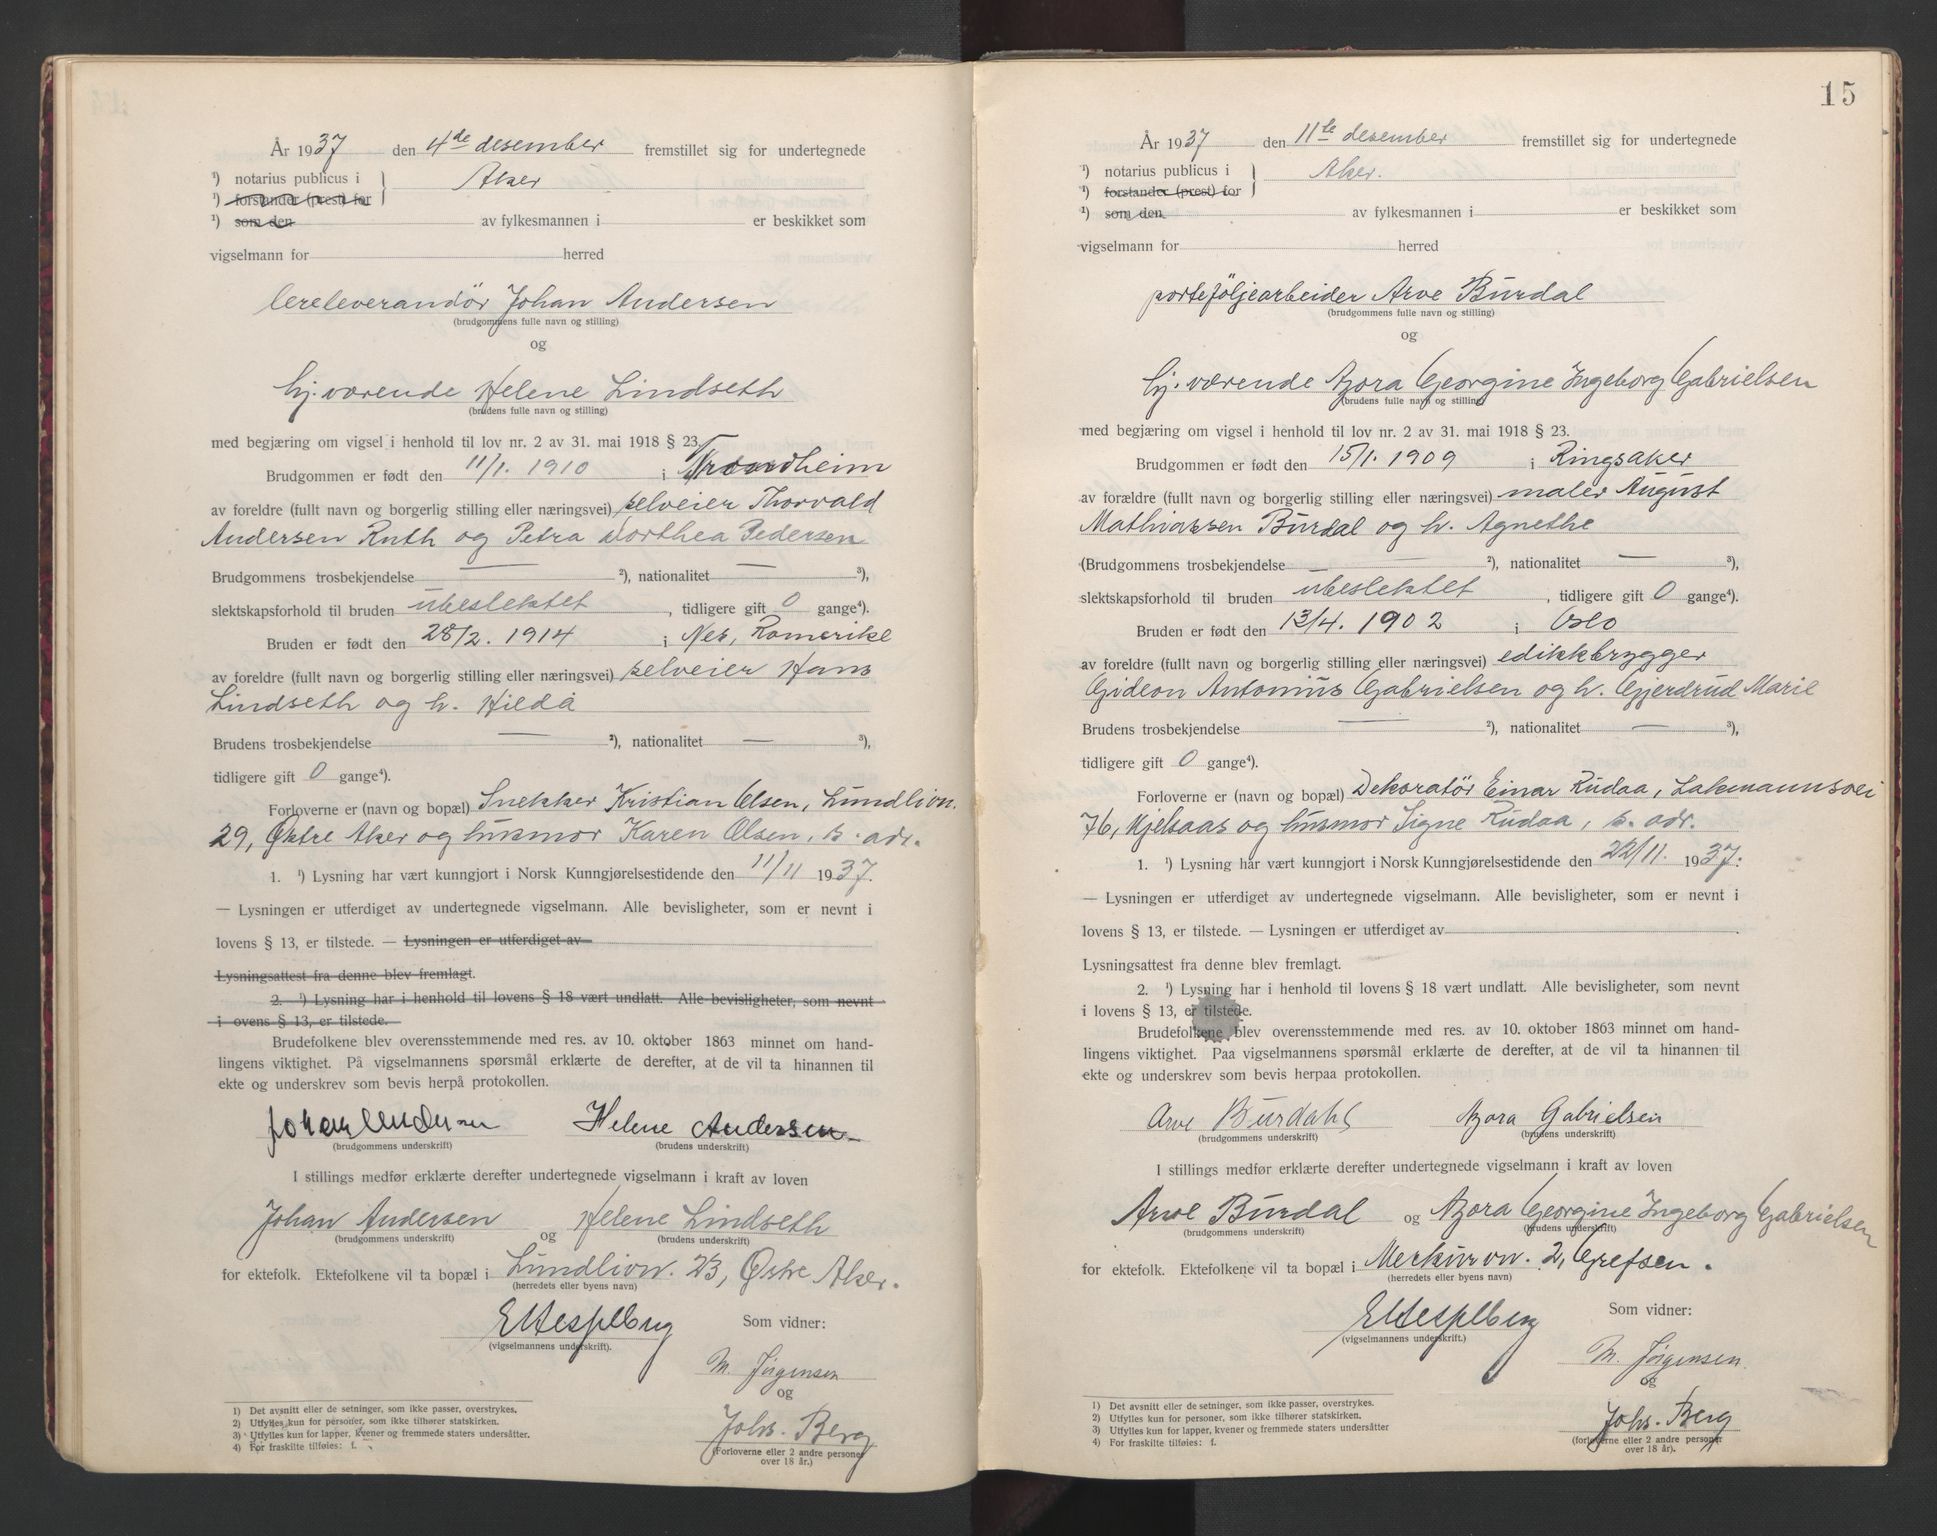 År 1937 den 4de desember fremstillet sig for undertegnede
¹) notarius publicus i Aker
¹) forstander (prest) for
¹) som den av fylkesmannen i er beskikket som
vigselmann for herred
lereleverandör Johan Andersen
(brudgommens fulle navn og stilling)
og
hj. værende Helene Lindseth
(brudens fulle navn og stilling)
med begjæring om vigsel i henhold til lov nr. 2 av 31. mai 1918 § 23.
Brudgommen er født den 11/1. 1910 i Trondheim
av foreldre (fullt navn og borgerlig stilling eller næringsvei) selveier Thorvald
Andersen Ruth og Petra Dorthea Pedersen
Brudgommens trosbekjendelse — ²), nationalitet — ³),
slektskapsforhold til bruden ubeslektet, tidligere gift 0 gange⁴).
Bruden er født den 28/2. 1914 i Nes, Romerike
av foreldre (fullt navn og borgerlig stilling eller næringsvei) selveier Hans
Lindseth og h. Hilda
Brudens trosbekjendelse — ²), nationalitet — ³),
tidligere gift 0 gange⁴).
Forloverne er (navn og bopæl) Snekker Kristian Olsen, Lundlivn.
29, Østre Aker og husmor Karen Olsen, s. adr.
1. ¹) Lysning har vært kunngjort i Norsk Kunngjørelsestidende den 11/11 1937.
— Lysningen er utferdiget av undertegnede vigselmann. Alle bevisligheter, som er nevnt i
lovens § 13, er tilstede. — Lysningen er utferdiget av
Lysningsattest fra denne blev fremlagt.
2. ¹) Lysning har i henhold til lovens § 18 vært undlatt. Alle bevisligheter, som nevnt
i ovens § 13, er tilstede.
Brudefolkene blev overensstemmende med res. av 10. oktober 1863 minnet om hand-
lingens viktighet. På vigselmannens spørsmål erklærte de derefter, at de vil ta hinannen til
ekte og underskrev som bevis herpå protokollen.
Johan Andersen Helene Andersen
(brudgommens underskrift) (brudens underskrift)
I stillings medfør erklærte derefter undertegnede vigselmann i kraft av loven
Johan Andersen og Helene Lindseth
(brudgommens underskrift) (brudens underskrift)
for ektefolk. Ektefolkene vil ta bopæl i Lundlivn. 23, Østre Aker.
(herredets eller byens navn)
Som vidner:
(vigselmannens underskrift).
M. Jørgensen
og
Johs. Berg
(Forloverne eller 2 andre personer
over 18 år.)
1) Det avsnitt eller de setninger, som ikke passer, overstrykes.
2) Utfylles kun for personer, som ikke tilhører statskirken.
3) Utfylles kun for lapper, kvener og fremmede staters undersåtter.
4) For fraskilte tilføies: f.
15
År 1937 den 11te desember fremstillet sig for undertegnede
¹) notarius publicus i Aker.
¹) forstander (prest) for
¹) som den av fylkesmannen i er beskikket som
vigselmann for herred
porteføljearbeider Arve Burdal
(brudgommens fulle navn og stilling)
og
hj. værende Azora Georgine Ingeborg Gabrielsen
(brudens fulle navn og stilling)
med begjæring om vigsel i henhold til lov nr. 2 av 31. mai 1918 § 23.
Brudgommen er født den 15/1. 1909 i Ringsaker
av forældre (fullt navn og borgerlig stilling eller næringsvei) maler August
Mathiassen Burdal og h. Agnethe
(Brudgommens trosbekjendelse — ²), nationalitet — ³),
slektskapsforhold til bruden ubeslektet, tidligere gift 0 gange⁴).
Bruden er født den 13/4. 1902 i Oslo
av foreldre (fullt navn og borgerlig stilling eller næringsvei) edikkbrygger
Gideon Antonius Gabrielsen og h. Gjerdrud Marie
Brudens trosbekjendelse — ²), nationalitet — ³),
tidligere gift 0 gange⁴).
Forloverne er (navn og bopæl) Dekoratör Einar Rudaa, Lakmannsvei
76, Kjelsaas og husmor Signe Rudaa, s. adr.
1. ¹) Lysning har vært kunngjort i Norsk Kunngjørelsestidende den 22/11. 1937.
— Lysningen er utferdiget av undertegnede vigselmann. Alle bevisligheter, som er nevnt i
lovens § 13, er tilstede. — Lysningen er utferdiget av
Lysningsattest fra denne blev fremlagt.
2. ¹) Lysning har i henhold til lovens § 18 vært undlatt. Alle bevisligheter, som nevnt
i lovens § 13, er tilstede.
Brudefolkene blev overensstemmende med res. av 10. oktober 1863 minnet om hand-
lingens viktighet. Paa vigselmannens spørsmål erklærte de derefter, at de vil ta hinannen til
ekte og underskrev som bevis herpaa protokollen.
Arve Burdahl Azora Gabrielsen
(brudgommens underskrift) (brudens underskrift)
I stillings medfør erklærte derefter undertegnede vigselmann i kraft av loven
Arve Burdal og Azora Georgine Ingeborg Gabrielsen
(brudgommens underskrift) (brudens underskrift)
for ektefolk. Ektefolkene vil ta bopæl i Merkurvn. 2, Grefsen.
(herredets eller byens navn)
Som vidner:
(vigselmannens underskrift.)
M. Jørgensen
og
Johs. Berg
(forloverne eller 2 andre personer
over 18 år).
1) Det avsnitt eller de setninger, som ikke passer, overstrykes.
2) Utfylles kun for personer, som ikke tilhører statskirken.
3) Utfylles kun for lapper, kvener og fremmede staters undersåtter
4) For fraskilte tilføies: f.